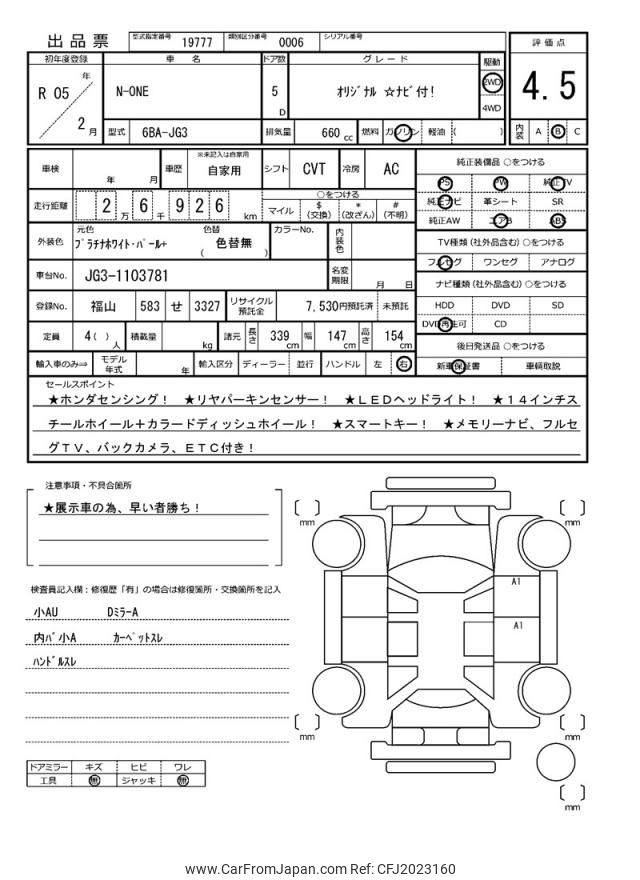 出品票 型式指定番号 19777 類別区分番号 0006 シリアル番号
評価点
4.5
内装 A B C
初年度登録 車 名 ドア数 グレード 駆動
R 05 年 2 月 N-ONE 5 D オリジナル ☆ナビ付! 2WD 4WD
型式 6BA-JG3 排気量 660 cc 燃料 ガソリン 軽油 ( )
車検 年 月 車歴 ※未記入は自家用 自家用 シフト CVT 冷房 AC
走行距離 2 万 6 千 9 2 6 km ○をつける
マイル $ (交換) * (改ざん) # (不明)
外装色 元色 プラチナホワイト・パール+ 色替 ( 色替無 ) カラーNo. 内装色
車台No. JG3-1103781 名変期限 月 日
登録No. 福山 583 せ 3327 リサイクル預託金 7,530円預託済 未預託
定員 4 ( ) 人 積載量 kg 諸元 長さ 339 cm 幅 147 cm 高さ 154 cm
輸入車のみ⇒ モデル年式 年 輸入区分 ディーラー 並行 ハンドル 左 右
純正装備品 ○をつける
PS PW 純正TV
純正ナビ 革シート SR
純正AW エアB ABS
TV種類(社外品含む) ○をつける
フルセグ ワンセグ アナログ
ナビ種類(社外品含む) ○をつける
HDD DVD SD
DVD再生可 CD
後日発送品 ○をつける
新車保証書 車輌取説
セールスポイント
★ホンダセンシング! ★リヤパーキンセンサー! ★LEDヘッドライト! ★14インチス
チールホイール+カラードディッシュホイール! ★スマートキー! ★メモリーナビ、フルセ
グTV、バックカメラ、ETC付き!
注意事項・不具合箇所
★展示車の為、早い者勝ち!
検査員記入欄:修復歴「有」の場合は修復箇所・交換箇所を記入
小AU DミラーA
内バ小A カーペットスレ
ハンドルスレ
ドアミラー キズ ヒビ ワレ
工具 無 ジャッキ 無
mm
mm
A1
A1
mm
mm
mm
www.CarFromJapan.com Ref: CFJ2023160